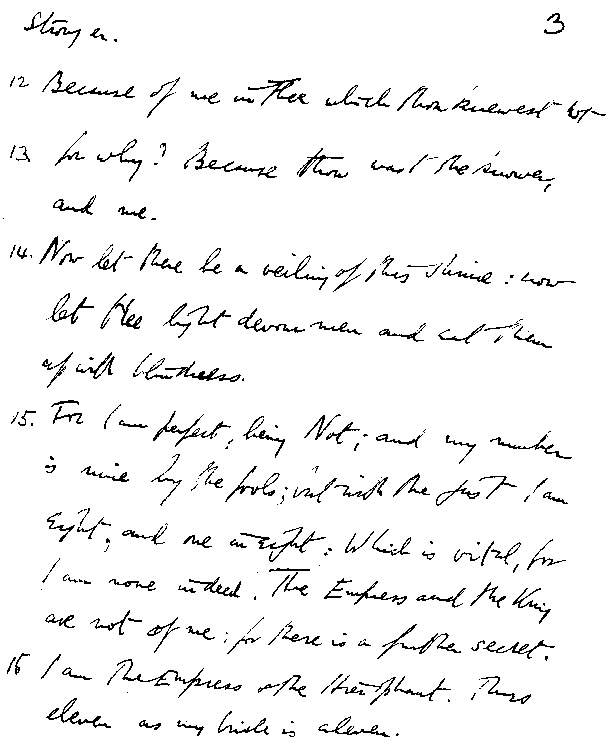 Stronger. 3
12 Because of me in Thee which thou knewest not
13 for why? Because thou wast the knower,
and me.
14. Now let there be a veiling of this shrine: now
let the light devour men and eat them
up with blindness.
15. For I am perfect, being Not; and my number
is nine by the fools; but with the just I am
eight, and one in eight: Which is vital, for
I am none indeed. The Empress and the King
are not of me; for there is a further secret.
16 I am the Empress & the Hierophant. Thus
eleven as my bride is eleven.